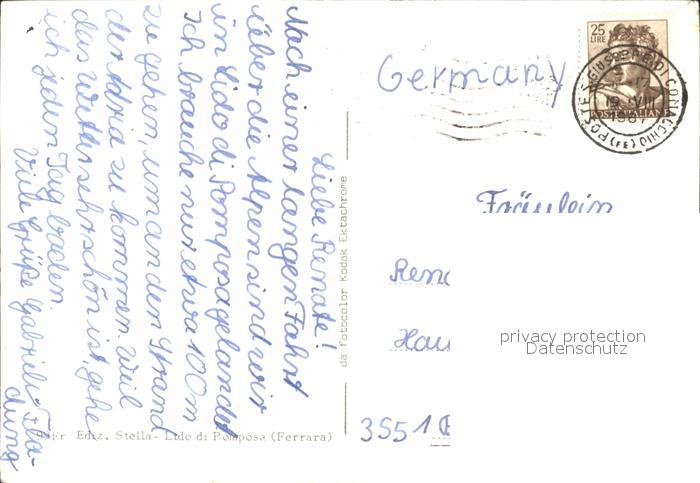 Liebe Renate!
Nach einer langen Fahrt
über die Alpen sind wir
in Lido di Pomposa gelandet
Ich brauche nur etwa 100 m
zu gehen, um an den Strand
der Adria zu kommen. Weil
das Wetter sehr schön ist, gehe
ich jeden Tag baden.
Viele Grüße Gabriele
Germany
25
LIRE
POSTE ITALIANE
S. GIUSEPPE DI COMACCHIO (FE)
19 VIII
1967
Fräulein
Rena
Hau
3551
privacy protection
Datenschutz
da fotocolor Kodak Ektachrome
Ediz. Stella - Lido di Pomposa (Ferrara)